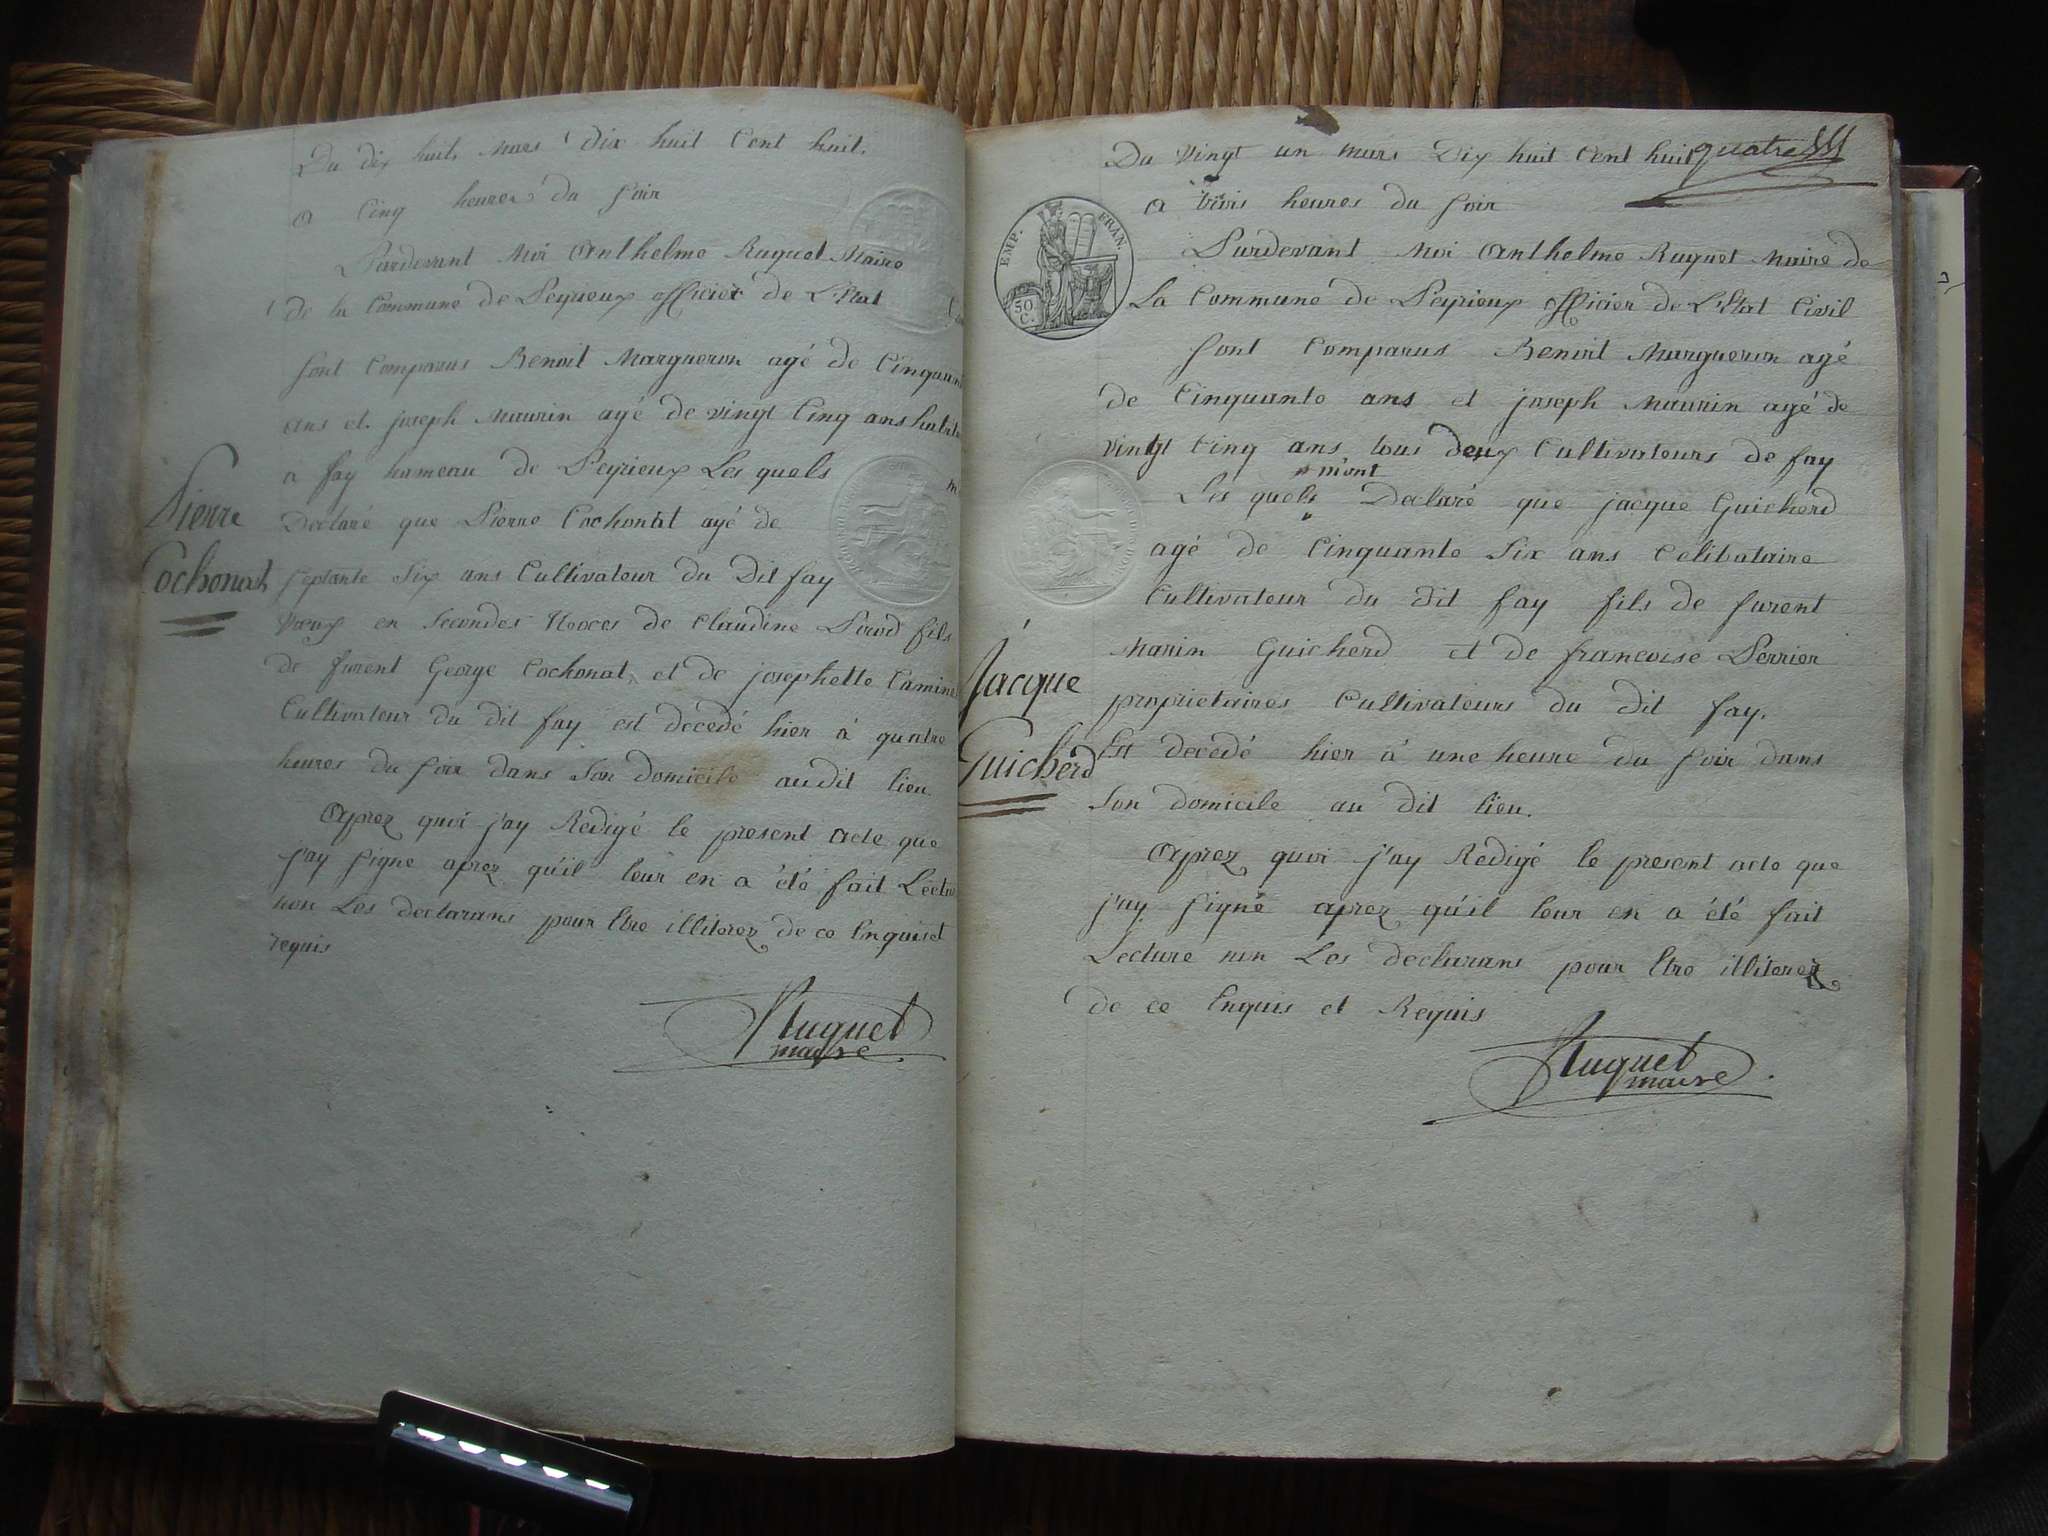 Du dix huit mars dix huit Cent huit.
a Cinq heures du soir
Pardevant Moi Anthelme Ruquet Maire
de la Commune de Peyrieux officier de L'Etat
sont Comparus Benoit Margueron agé de Cinquan
ans et joseph Maurin agé de vingt Cinq ans habit
a fay hameau de Peyrieux Les quels m
Declaré que Pierre Cochonat agé de
septante Six ans Cultivateur du Dit fay
Vœuf en Secondes Noces de Claudine fils
de furent George Cochonat et de josephette Camine
Cultivateur du dit fay est décédé hier à quatre
heures du soir dans Son domicile audit lieu.
Aprez quoi j'ay Redigé le present acte que
j'ay signe aprez qu'il leur en a été fait Lectu
non Les declarans pour Etre illiterez de ce Enquis et
requis
Ruquet
maire
Pierre
Cochonat
quatre
Du vingt un mars Dix huit Cent huit
a trois heures du soir
Pardevant Moi Anthelme Ruquet Maire de
La Commune de Peyrieux officier de L'Etat Civil
sont Comparus Benoit Margueron agé
de Cinquante ans et joseph Maurin agé de
vingt Cinq ans tous deux Cultivateurs de fay
m'ont
Les quels Declaré que jacque Guicherd
agé de Cinquante Six ans Celibataire
Cultivateur du dit fay fils de furent
Marin Guicherd et de francoise Perrier
proprietaires Cultivateurs du dit fay.
Est decedé hier à une heure du soir dans
Son domicile au dit lieu.
Aprez quoi j'ay Redigé le present acte que
j'ay signé aprez qu'il leur en a été fait
Lecture non Les declarans pour Etre illiterez
de ce Enquis et Requis
Ruquet
maire
Jacque
Guicherd
EMP. FRAN.
50
C.